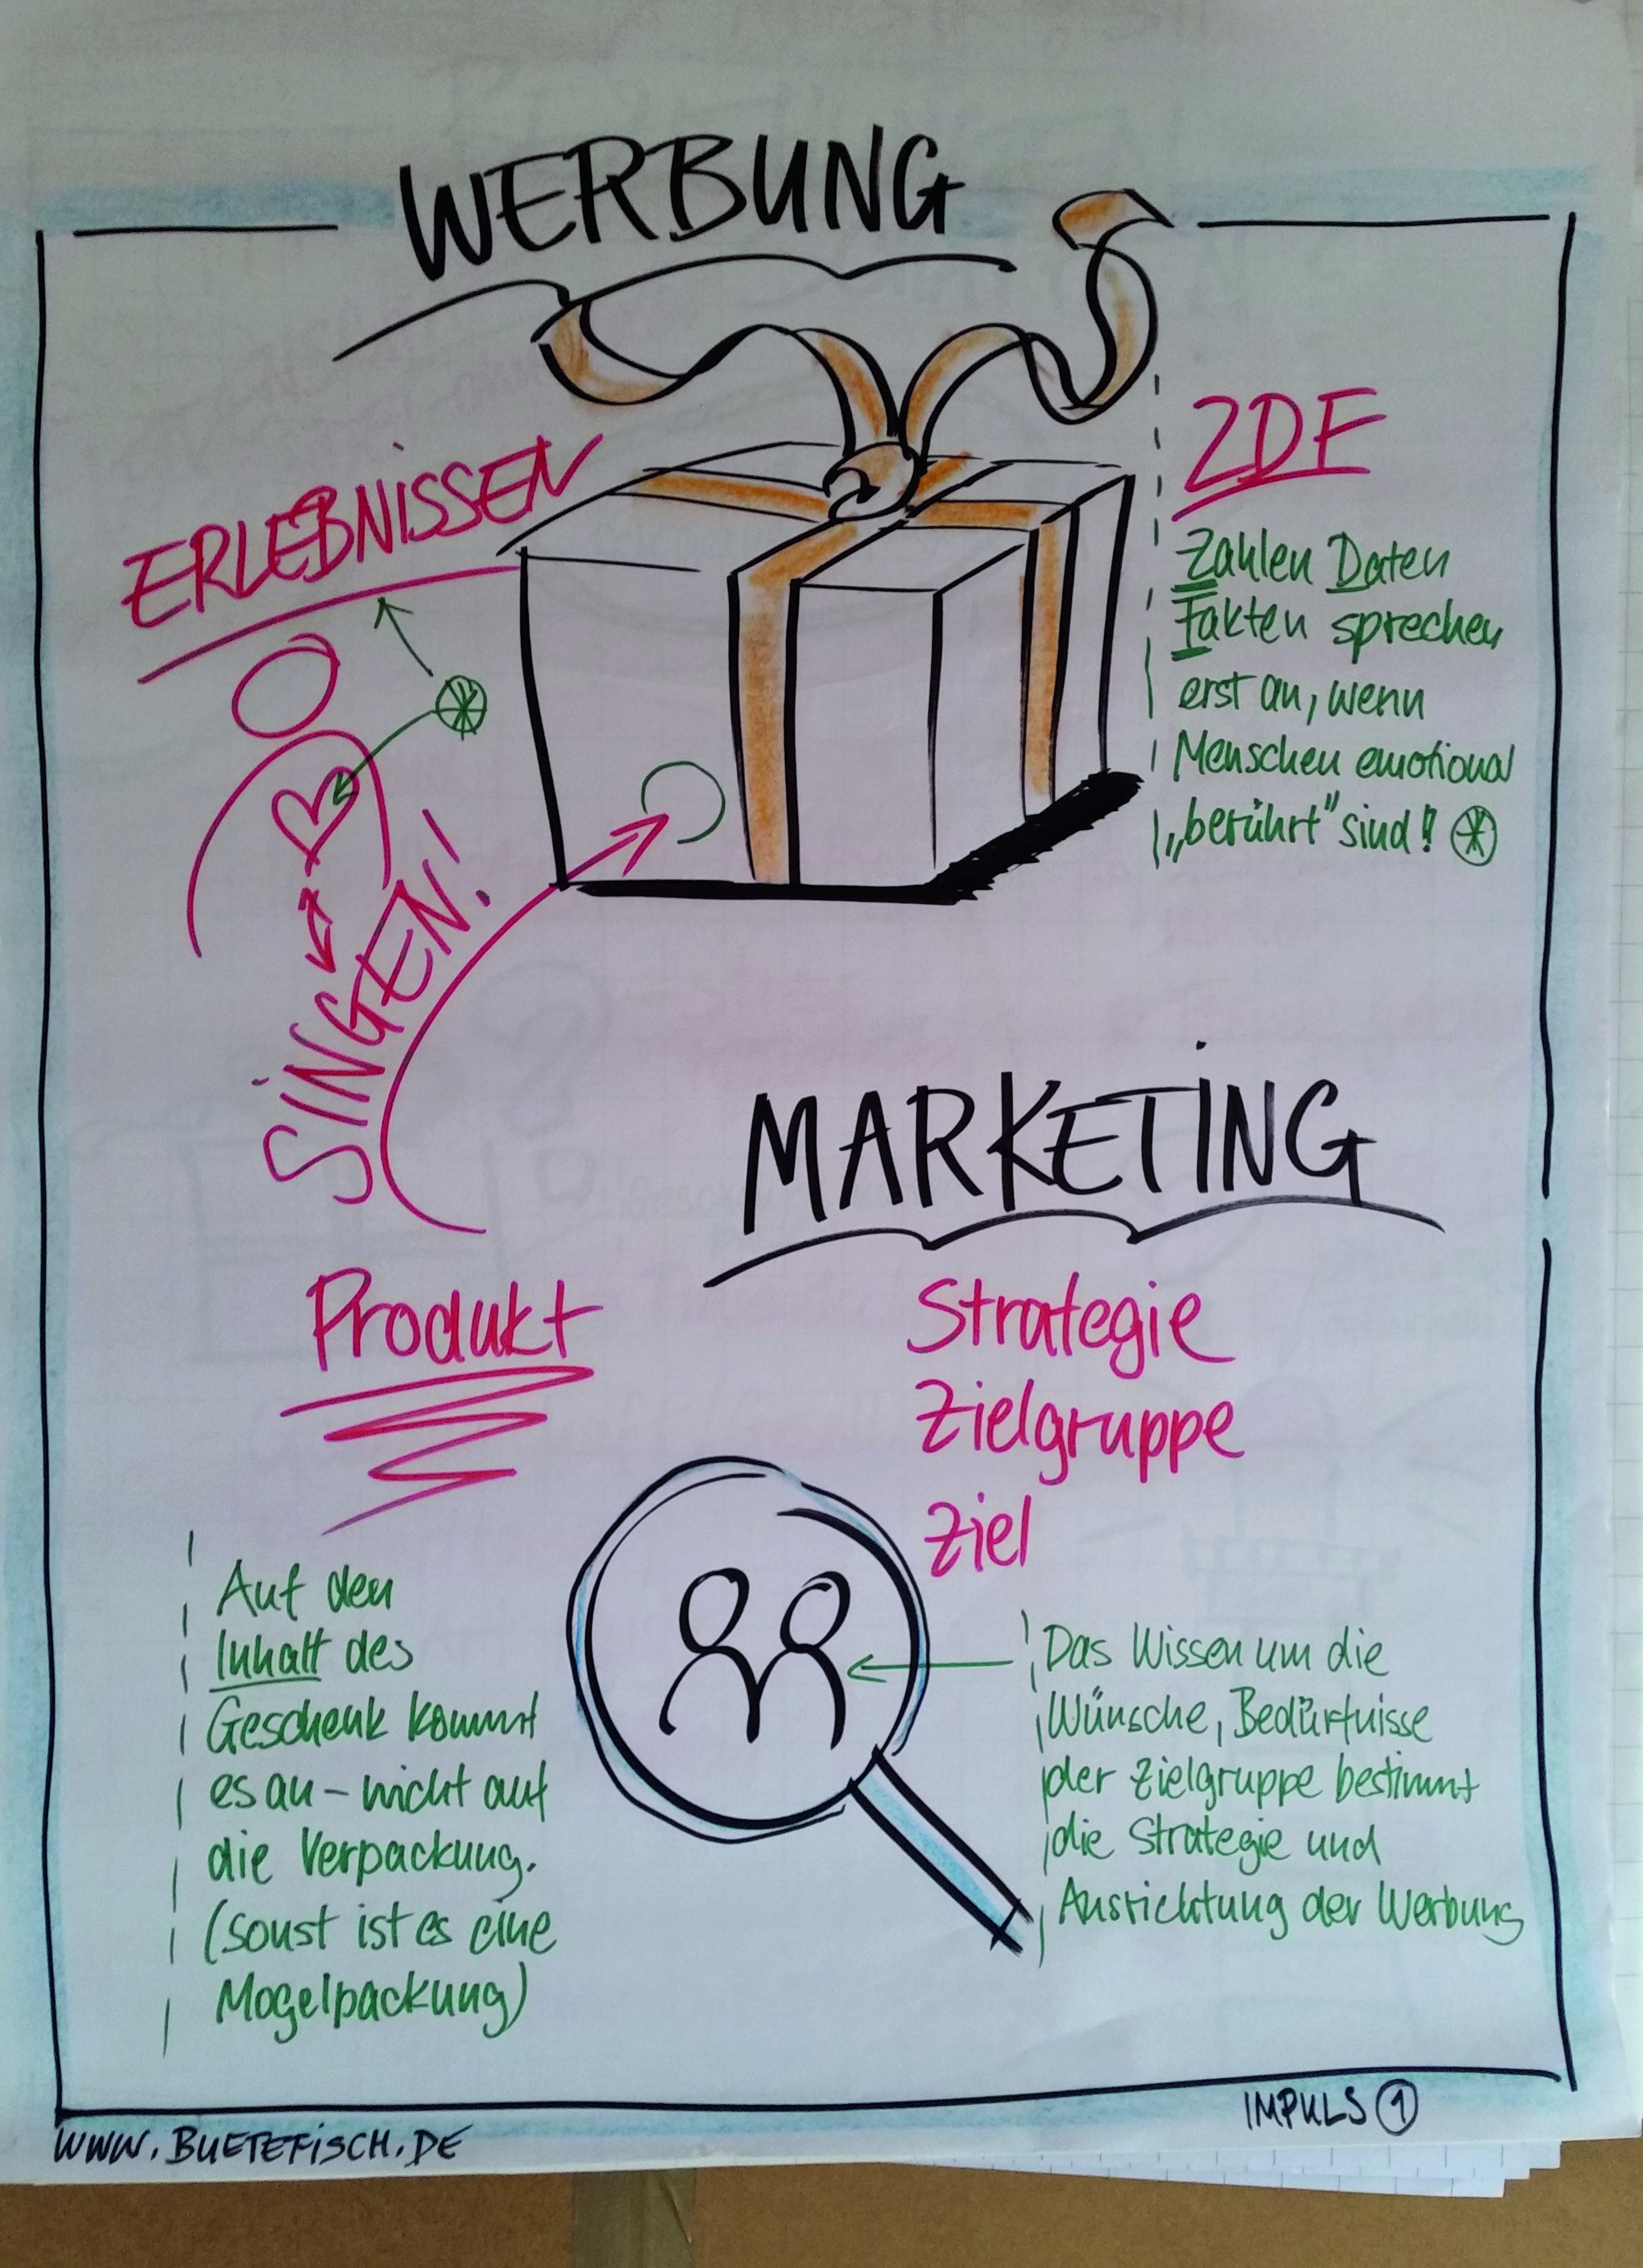 WERBUNG
ERLEBNISSEN
ZDF
Zahlen Daten
Fakten sprechen
erst an, wenn
Menschen emotional
„berührt" sind!
SINGEN!
MARKETING
Produkt
Strategie
Zielgruppe
Ziel
Auf den
Inhalt des
Geschenk kommt
es an – nicht auf
die Verpackung.
(sonst ist es eine
Mogelpackung)
Das Wissen um die
Wünsche, Bedürfnisse
der Zielgruppe bestimmt
die Strategie und
Ausrichtung der Werbung
IMPULS 1
WWW.BUETEFISCH.DE